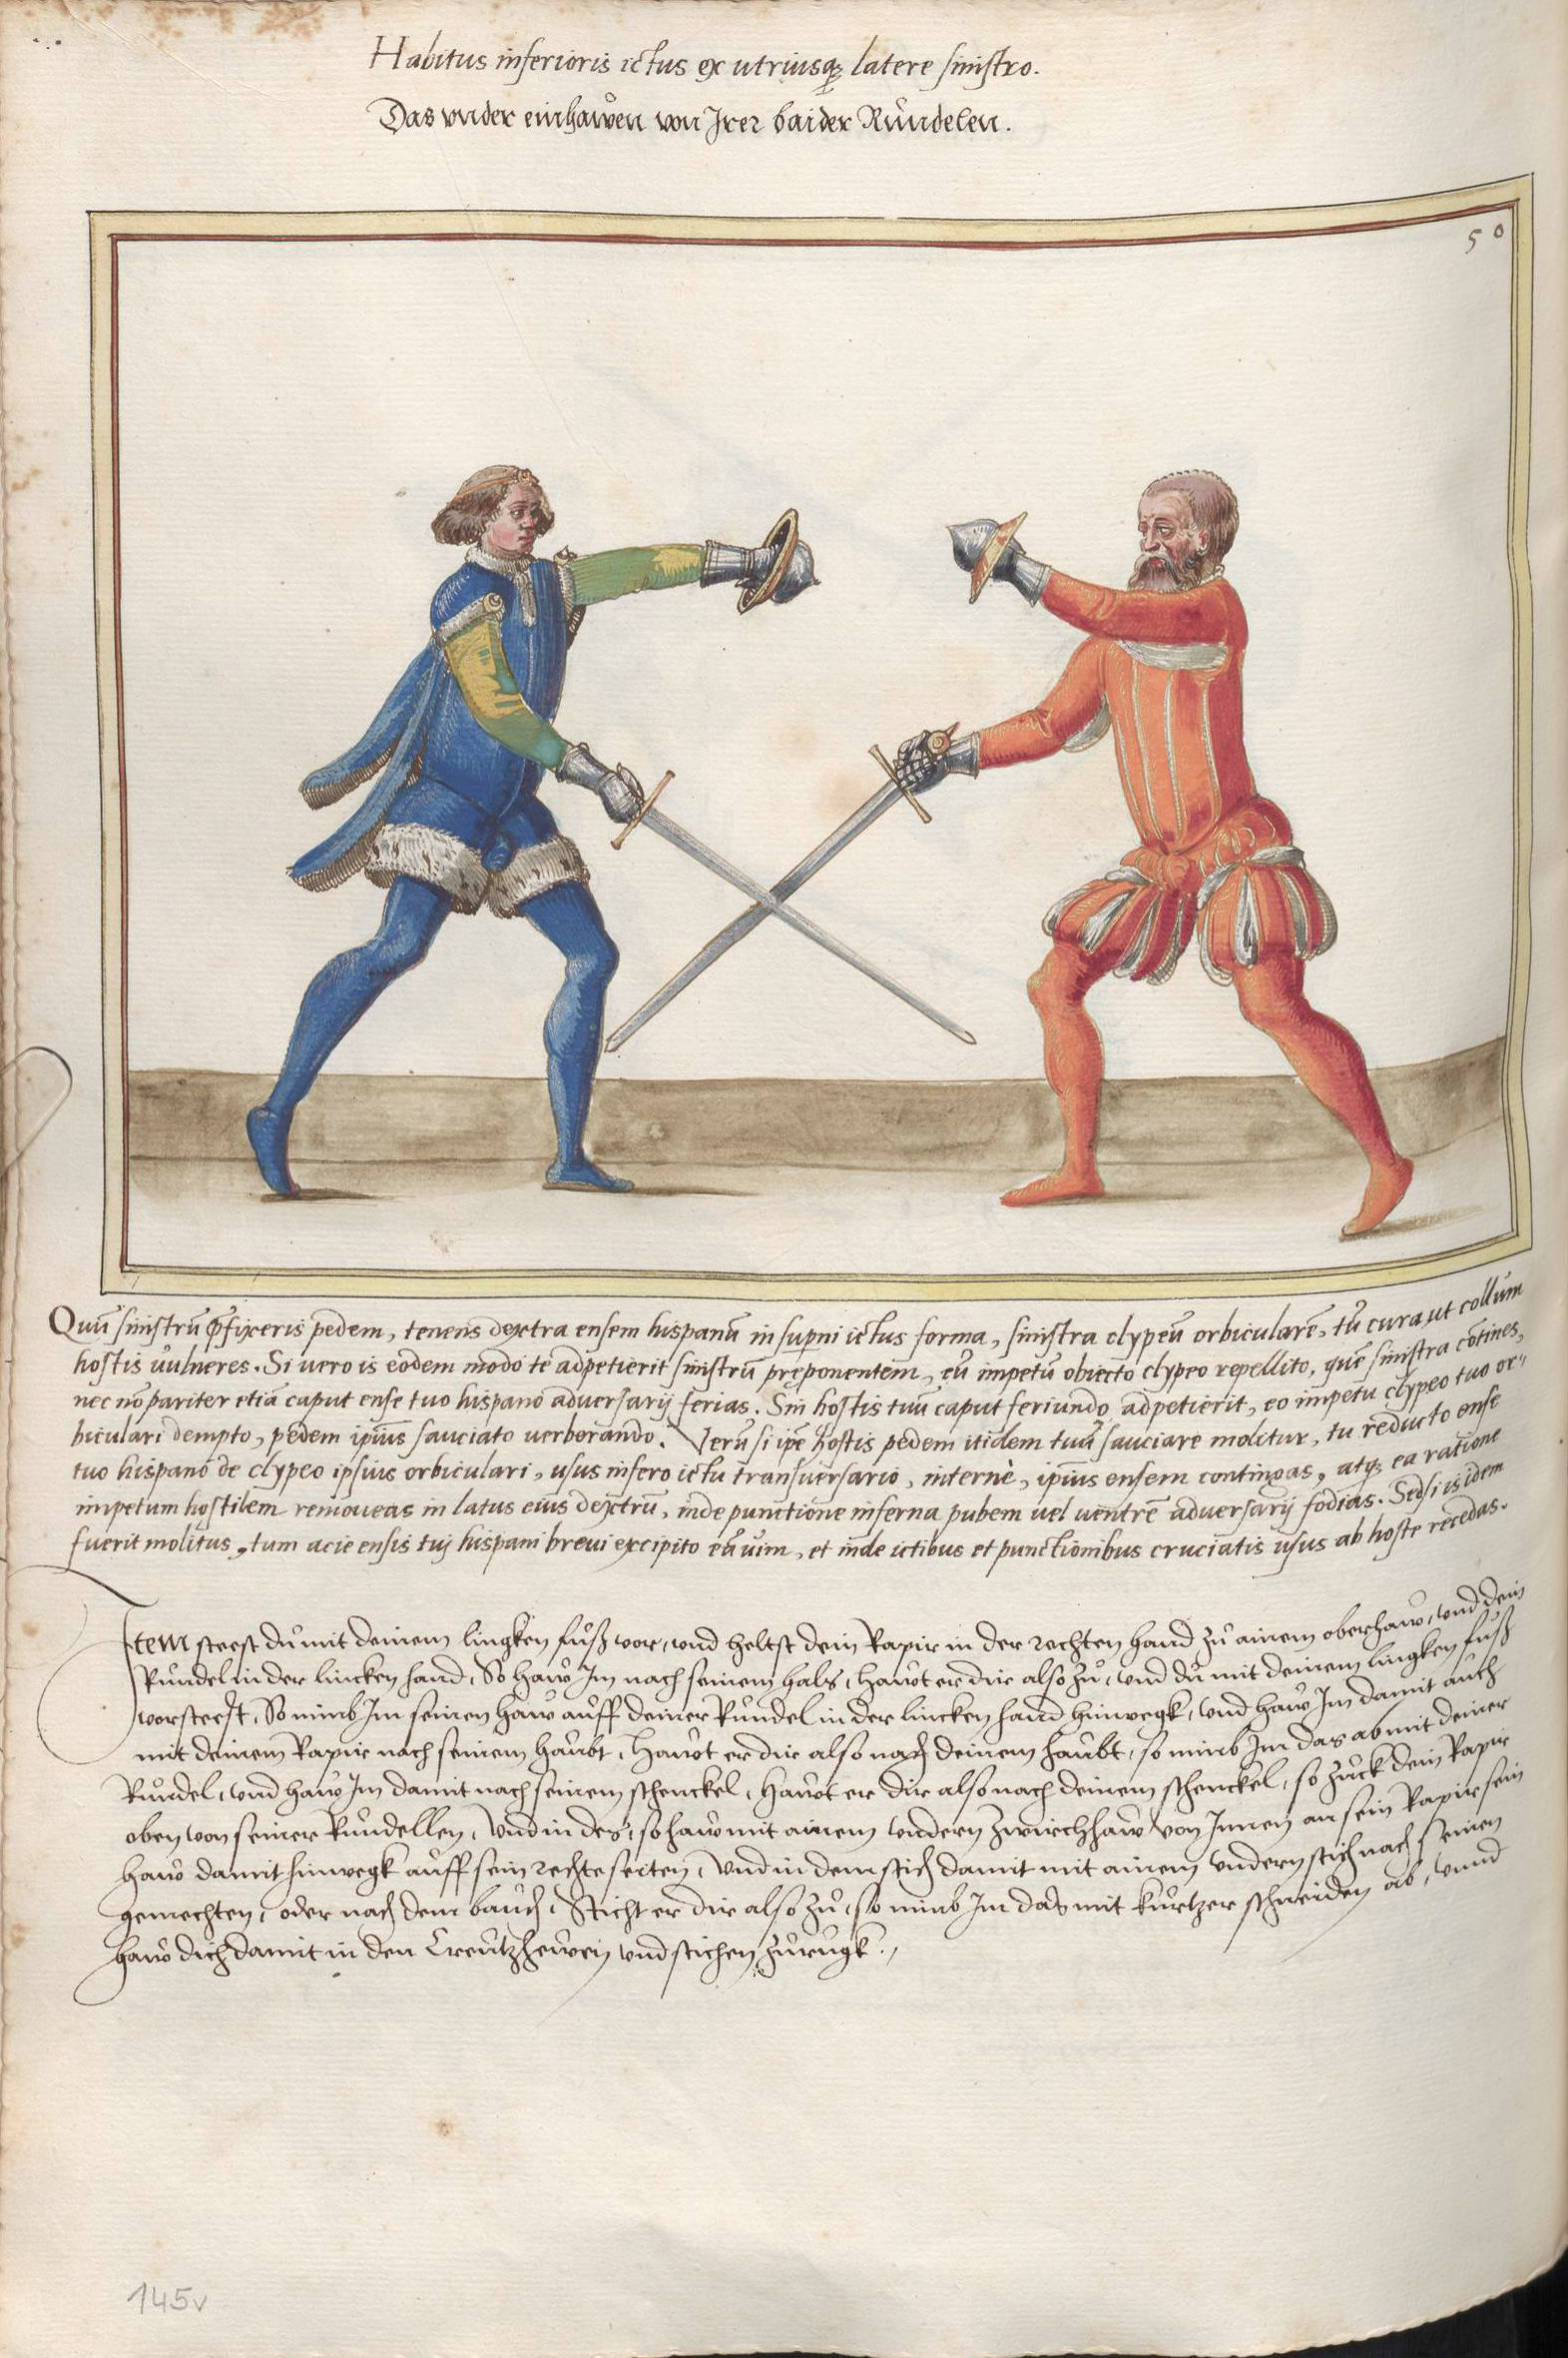 Habitus inferioris ictus ex utriusq; latere sinistro.
Das vnder einhauwen von Irer baider Rundelen.
50
Quũ sinistrũ p̃fixeris pedem, tenens dextra ensem hispanũ in supni ictus forma, sinistra clypeũ orbicularẽ, tũ cura ut collum
hostis uulneres. Si uero is eodem modo te adpetierit sinistrũ preponentem, eũ impetũ obiecto clypeo repellito, quẽ sinistra cõtines,
nec nõ pariter etiã caput ense tuo hispano aduersarij ferias. Sin hostis tuũ caput feriundo adpetierit, eo impetu clypeo tuo or-
biculari dempto, pedem ipsius sauciato uerberando. Verũ si ipẽ hostis pedem itidem tuũ sauciare molitur, tu reducto ense
tuo hispano de clypeo ipsius orbiculari, usus infero ictu transuersario, internè, ipsius ensem contingas, atq; ea ratione
impetum hostilem remoueas in latus eius dextrũ, inde punctione inferna pubem uel uentrẽ aduersarij fodias. Sed si is idem
fuerit molitus, tum acie ensis tuj hispani breui excipito eã uim, et inde ictibus et punctionibus cruciatis usus ab hoste recedas.
Item steest du mit deinem lingken fuß vor, vnd heltst dein Rapir in der rechten hand zu ainem oberhaw, vnd dein
Rundel in der lincken hand, So haw Im nach seinem hals, hawt er dir also zu, vnd du mit deinem lingken fuß
vorsteest, So nimb Im seinen haw auff deiner Rundel in der lincken hand hinwegk, vnd haw Im damit auch
mit deinem Rapir nach seinem haubt, Hawt er dir also nach deinem haubt, so nimb Im das ab mit deiner
Rundel, vnd haw Im damit nach seinem schenckel, Hawt er dir also nach deinem schenckel, so zuck dein Rapir
oben von seiner Rundellen, Vnd in des, so haw mit ainem vndern Zwirchhaw von Innen an sein Rapir sein
haw damit hinwegk auff sein rechte seiten, Vnd in dem stich damit mit ainem vndern stich nach seinen
gemechten, oder nach dem bauch, Sticht er dir also zu, so nimb Im das mit kurtzer schneiden ab, vnnd
haw dich damit in den Creutzhewen vnd stichen zurugk.
145v